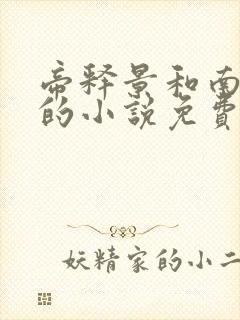 帝释景和南
的小說免費
妖精家的小二